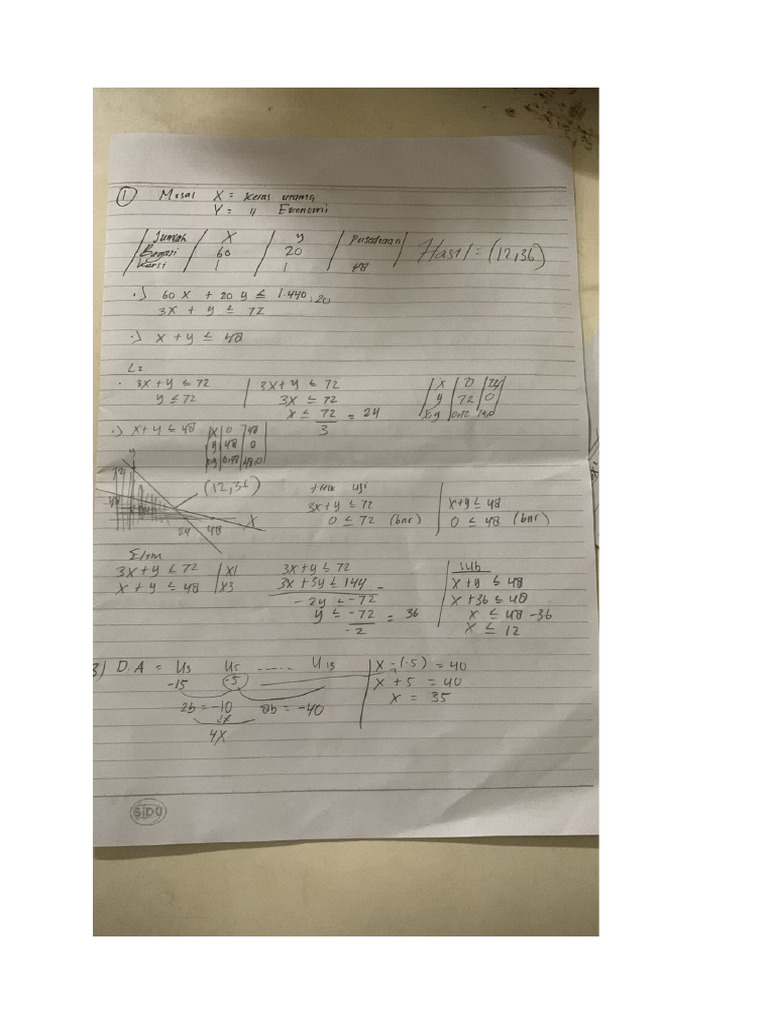 1 Misal X = Kelas utama
Y = 〃 Ekonomi
Jumlah | X | y | Persediaan
Bagasi | 60 | 20
Kursi | 1 | 1 | 48
Hasil = (12,36)
•) 60 x + 20 y ≤ 1.440 : 20
3x + y ≤ 72
•) x + y ≤ 48
• 3x + y ≤ 72
y ≤ 72
3x + y ≤ 72
3x ≤ 72
x ≤ 72/3 = 24
x | 0 | 24
y | 72 | 0
x,y | 0,72 | 24,0
•) x + y ≤ 48
x | 0 | 48
y | 48 | 0
x,y | 0,48 | 48,0
y
72
48
24 48 X
(12,36)
titik uji
3x + y ≤ 72
0 ≤ 72 (bnr)
x + y ≤ 48
0 ≤ 48 (bnr)
Elim
3x + y ≤ 72 | x1
x + y ≤ 48 | x3
3x + y ≤ 72
3x + 3y ≤ 144 -
-2y ≤ -72
y ≤ -72/-2 = 36
sub
x + y ≤ 48
x + 36 ≤ 48
x ≤ 48 - 36
x ≤ 12
3) D.A = U3 U5 ..... U13
-15 -5
2b = -10 8b = -40
4x
x - (-5) = 40
x + 5 = 40
x = 35
SIDU